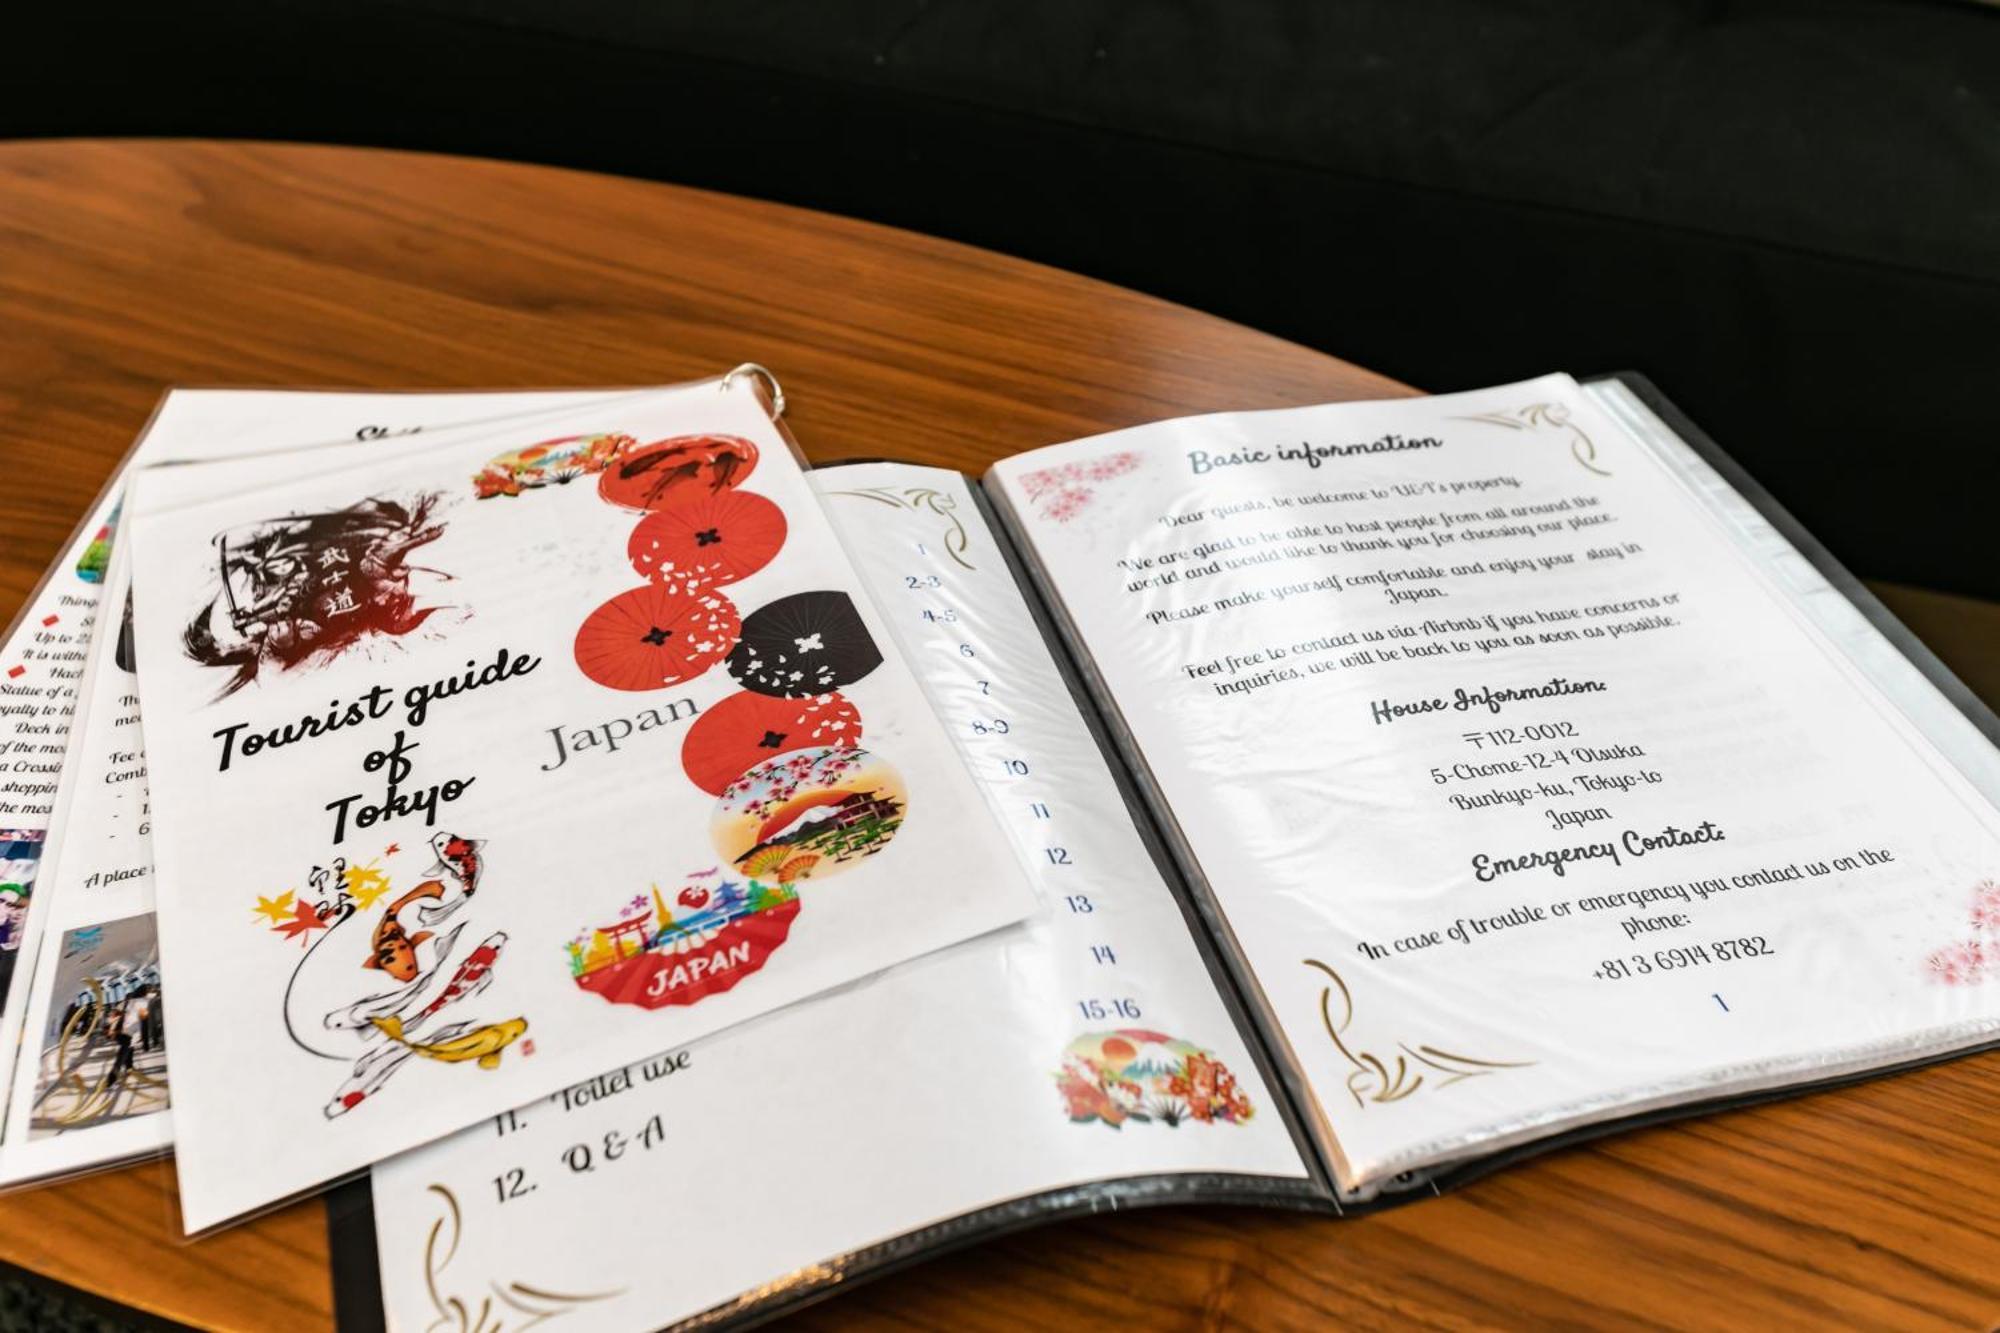 Things
Up to
It is witho
Hach
Statue of a
yalty to hi
Deck in
of the mo
a Crossi
shoppin
the mos
Fee
Comb
A place
武士道
Tourist guide
of
Tokyo
Japan
JAPAN
1
2-3
4-5
6
7
8-9
10
11
12
13
14
15-16
11. Toilet use
12. Q & A
Basic information
Dear guests, be welcome to U&I's property.
We are glad to be able to host people from all around the
world and would like to thank you for choosing our place.
Please make yourself comfortable and enjoy your stay in
Japan.
Feel free to contact us via Airbnb if you have concerns or
inquiries, we will be back to you as soon as possible.
House Information:
〒112-0012
5-Chome-12-4 Otsuka
Bunkyo-ku, Tokyo-to
Japan
Emergency Contact:
In case of trouble or emergency you contact us on the
phone:
+81 3 6914 8782
1